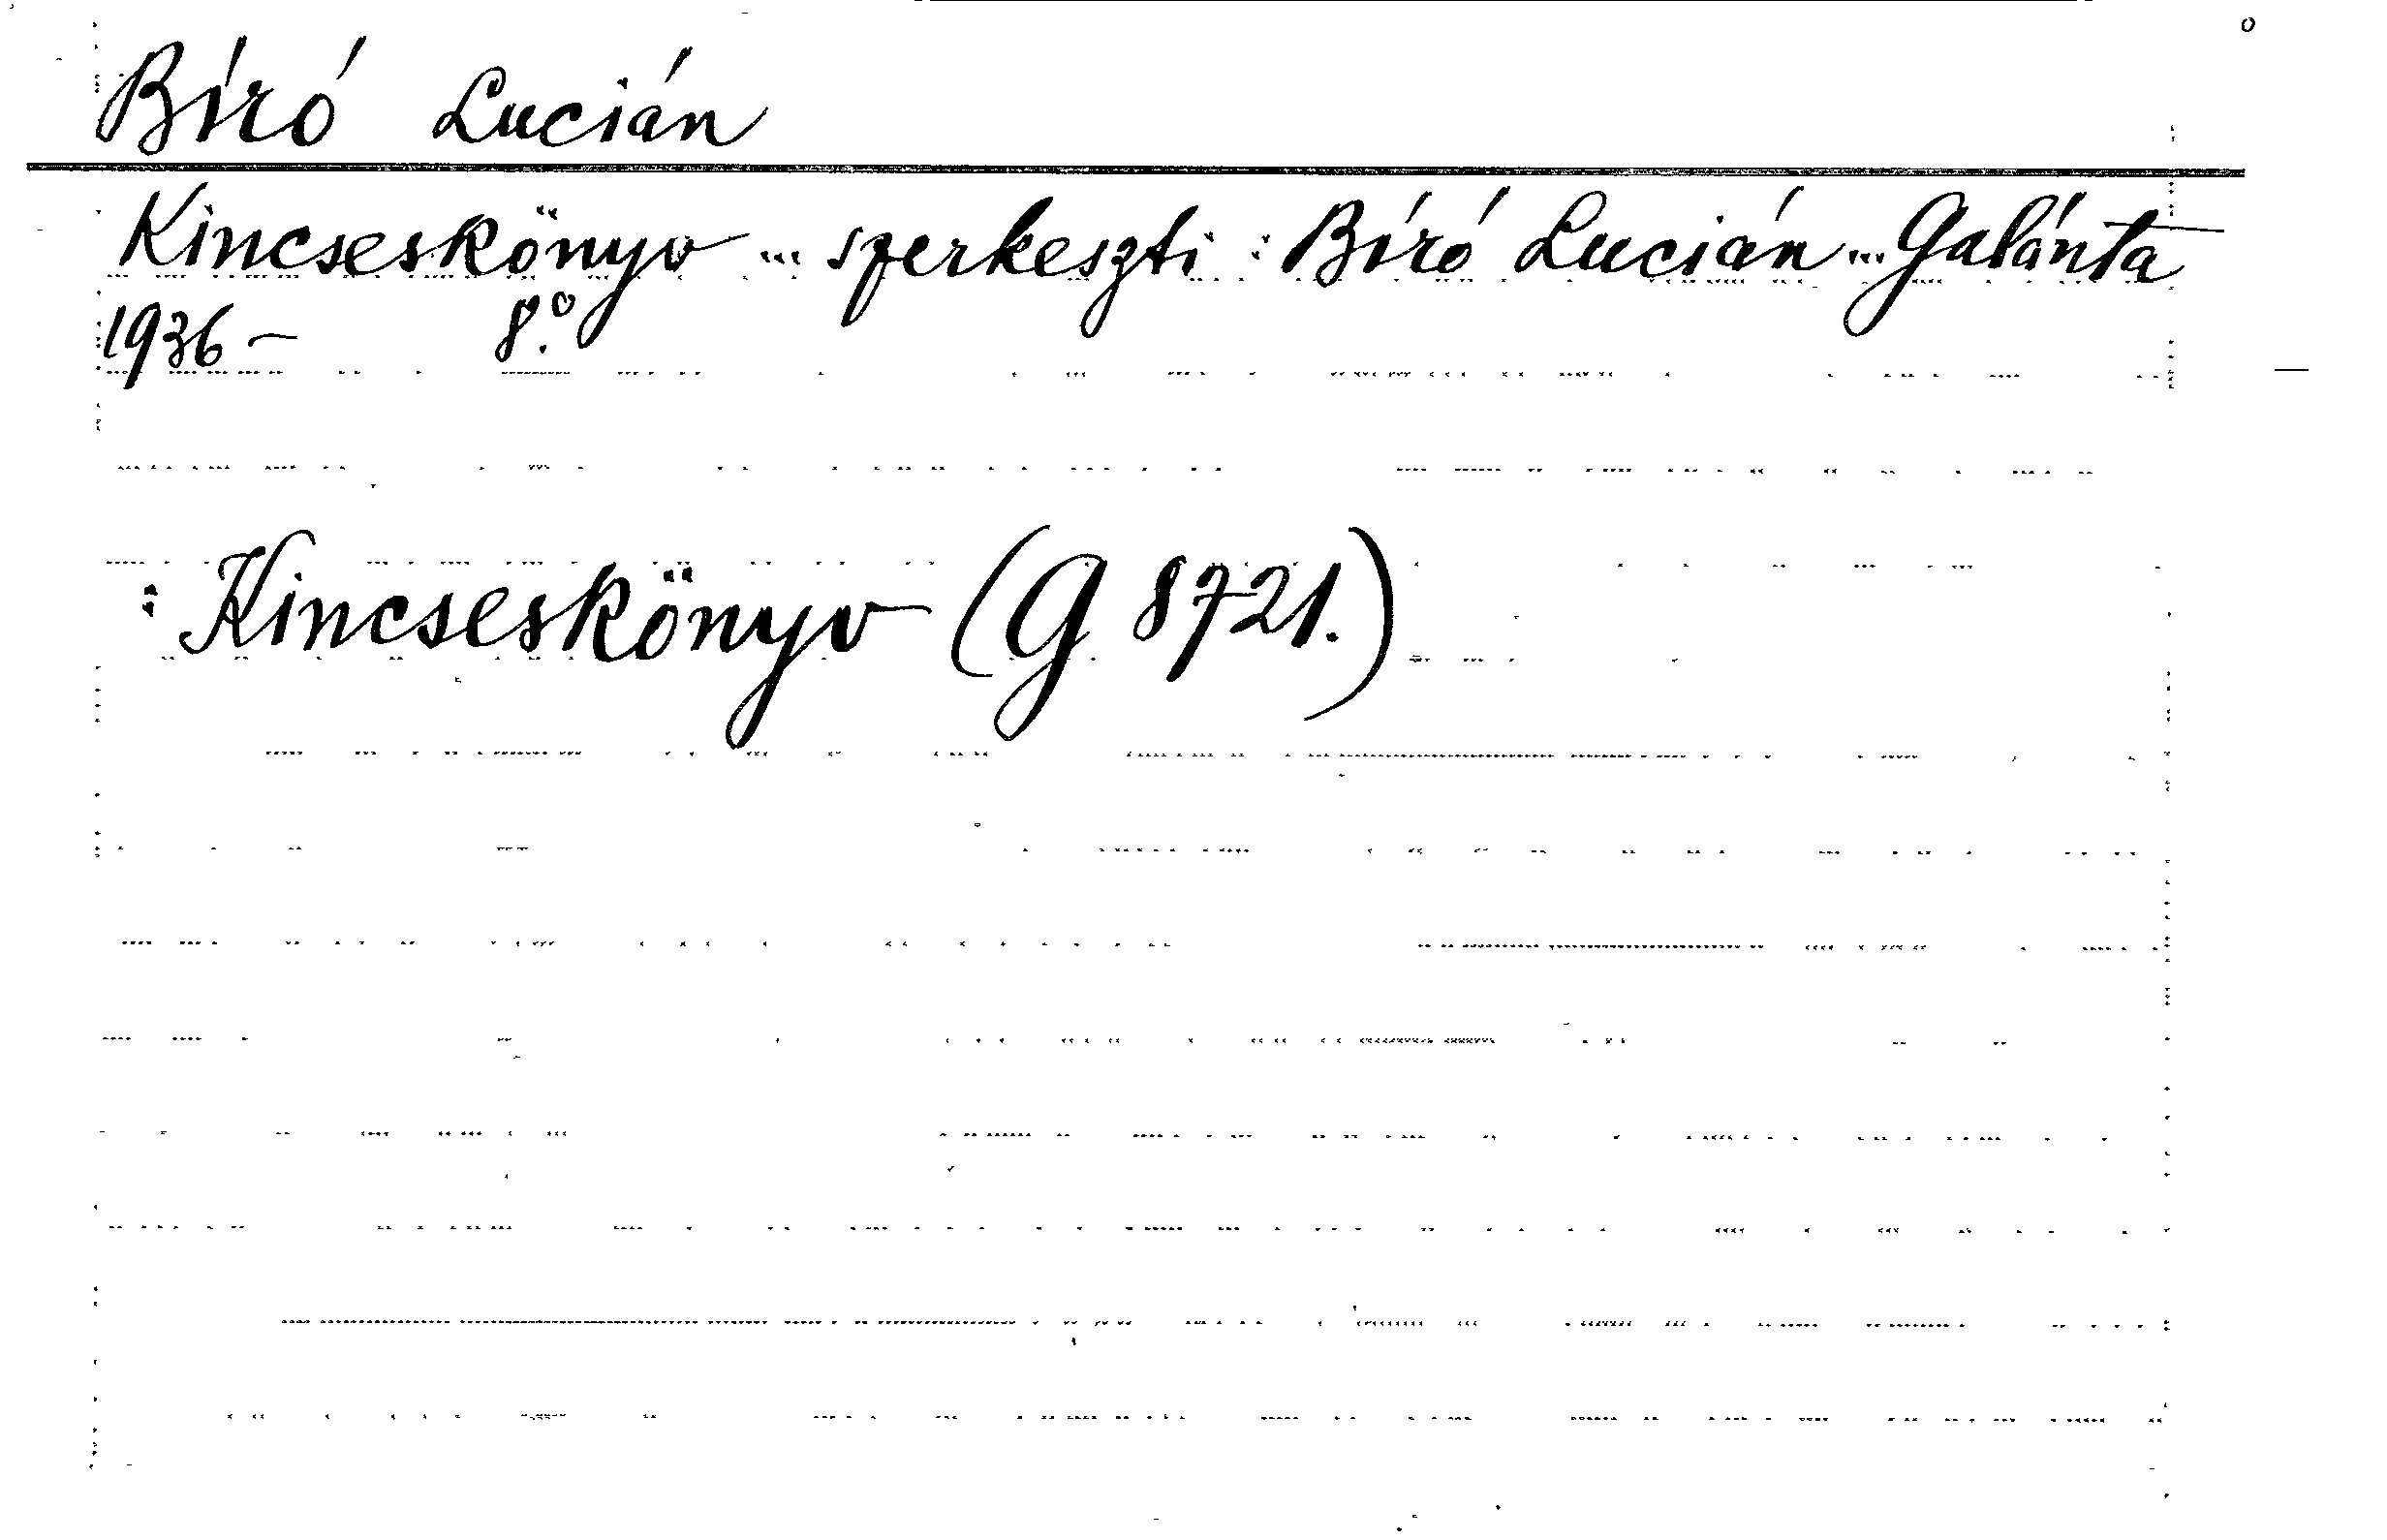 Bíró Lucián
Kincseskönyv ... szerkeszti: Bíró Lucián ... Galánta
1936 – 8.°
: Kincseskönyv (G 8721.)